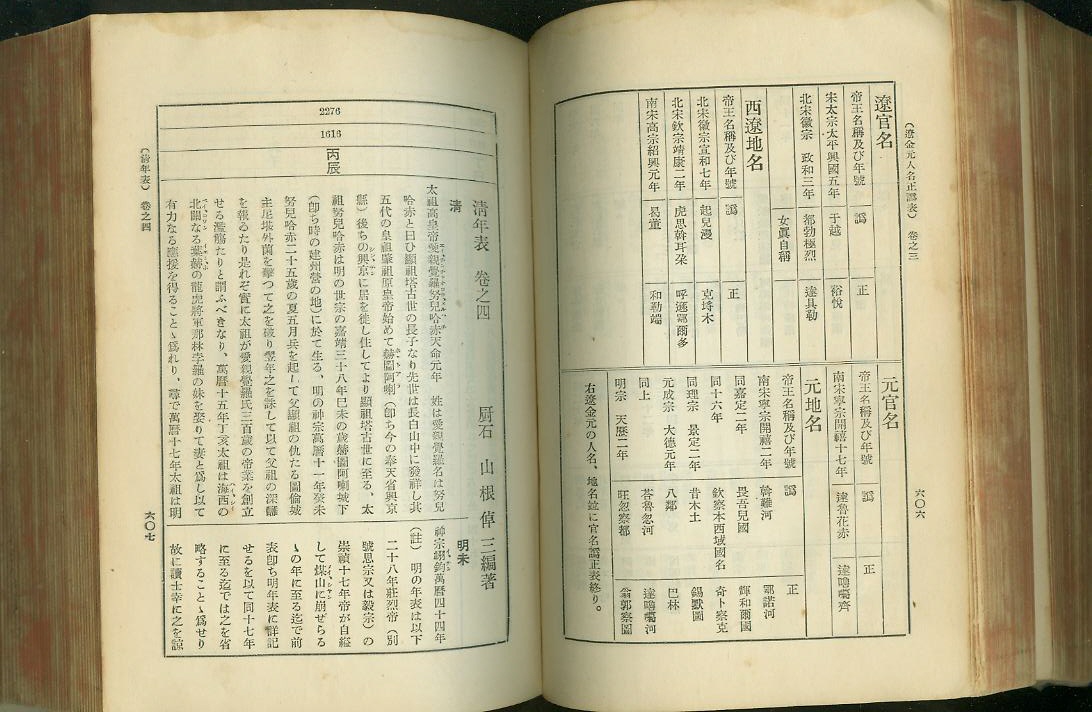 (遼金元人名正譌表) 卷之三
六〇六
遼官名
帝王名稱及び年號 譌 正
宋太宗太平興國五年 于越 裕悅
北宋徽宗 政和三年 都勃極烈 達具勒
女眞自稱
西遼地名
帝王名稱及び年號 譌 正
北宋徽宗宣和七年 起兒漫 克埒木
北宋欽宗靖康二年 虎思斡耳朶 呼遜鄂爾多
南宋高宗紹興元年 曷董 和勒端
元官名
帝王名稱及び年號 譌 正
南宋寧宗開禧十七年 達魯花赤 達嚕噶齊
元地名
帝王名稱及び年號 譌 正
南宋寧宗開禧二年 斡難河 鄂諾河
同嘉定二年 畏吾兒國 輝和爾國
同十六年 欽察本西域國名 奇卜察克
同理宗 景定二年 昔木土 錫默圖
元成宗 大德元年 八鄰 巴林
同上 荅魯忽河 達嚕噶河
明宗 天曆二年 旺忽察都 翁郭察圖
右遼金元の人名、地名竝に官名譌正表終り。
2276
1616
丙辰
淸年表 卷之四
厝石 山根倬三編著
淸
太祖高皇帝愛親覺羅努兒哈赤天命元年 姓は愛親覺羅名は努兒
哈赤と曰ひ顯祖塔古世の長子なり先世は長白山中に發祥し其
五代の皇祖肇祖原皇帝始めて赫圖阿喇(卽ち今の奉天省興京
縣)後ちの興京に居を徙し住してより顯祖塔古世に至る、太
祖努兒哈赤は明の世宗の嘉靖三十八年巳未の歲赫圖阿喇城下
(卽ち時の建州營の地)に於て生る、明の神宗萬曆十一年癸未
努兒哈赤二十五歲の夏五月兵を起して父顯祖の仇たる圖倫城
主尼堪外蘭を擊つて之を破り翌年之を誅して以て父祖の深讎
を報るたり是れぞ實に太祖が愛親覺羅氏三百歲の帝業を創立
せる濫觴たりと謂ふべきなり、萬曆十五年丁亥太祖は海西の
北關なる葉赫の龍虎將軍那林孛羅の妹を娶りて妻と爲し以て
有力なる應援を得ることゝ爲れり、尋で萬曆十七年太祖は明
明末
神宗翊鈞萬曆四十四年
(註) 明の年表は以下
二十八年莊烈帝(別
號思宗又は毅宗)の
崇禎十七年帝が自縊
して煤山に崩ぜらる
ゝの年に至る迄で前
表卽ち明年表に詳記
せるを以て同十七年
に至る迄では之を省
略することゝ爲せり
故に讀士幸に之を諒
(淸年表) 卷之四
六〇七